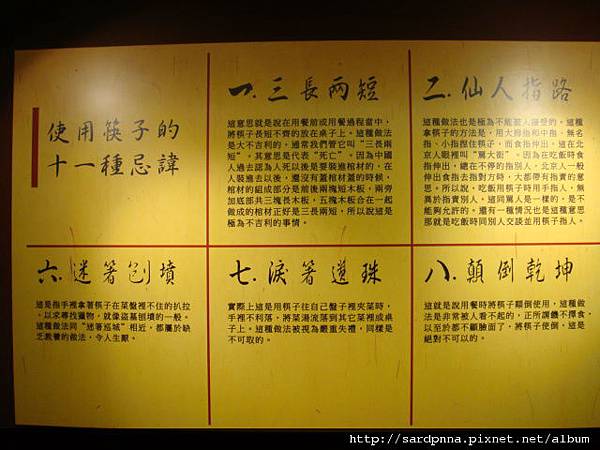 使用筷子的
十一種忌諱
一.三長兩短
這意思就是說在用餐前或用餐過程當中,
將筷子長短不齊的放在桌子上。這種做法
是大不吉利的,通常我們管它叫"三長兩
短"。其意思是代表"死亡"。因為中國
人過去認為人死以後是要裝進棺材的,在
人裝進去以後,還沒有蓋棺材蓋的時候,
棺材的組成部分是前後兩塊短木板,兩旁
加底部共三塊長木板,五塊木板合在一起
做成的棺材正好是三長兩短,所以說這是
極為不吉利的事情。
二.仙人指路
這種做法也是極為不能被人接受的,這種
拿筷子的方法是,用大拇指和中指、無名
指、小指捏住筷子,而食指伸出。這在北
京人眼裡叫"罵大街"。因為在吃飯時食
指伸出,總在不停的指別人,北京人一般
伸出食指去指對方時,大都帶有指責的意
思。所以說,吃飯用筷子時用手指人,無
異於指責別人,這同罵人是一樣的,是不
能夠允許的。還有一種情況也是這種意思
那就是吃飯時同別人交談並用筷子指人。
六.迷箸刨墳
這是指手裡拿著筷子在菜盤裡不住的扒拉
,以求尋找獵物,就像盜墓刨墳的一般。
這種做法同"迷箸巡城"相近,都屬於缺
乏教養的做法,令人生厭。
七.淚箸遺珠
實際上這是用筷子往自己盤子裡夾菜時,
手裡不利落,將菜湯流落到其它菜裡或桌
子上。這種做法被視為嚴重失禮,同樣是
不可取的。
八.顛倒乾坤
這就是說用餐時將筷子顛倒使用,這種做
法是非常被人看不起的,正所謂饑不擇食,
以至於都不顧臉面了,將筷子使倒,這是
絕對不可以的。
http://sardpnna.pixnet.net/album